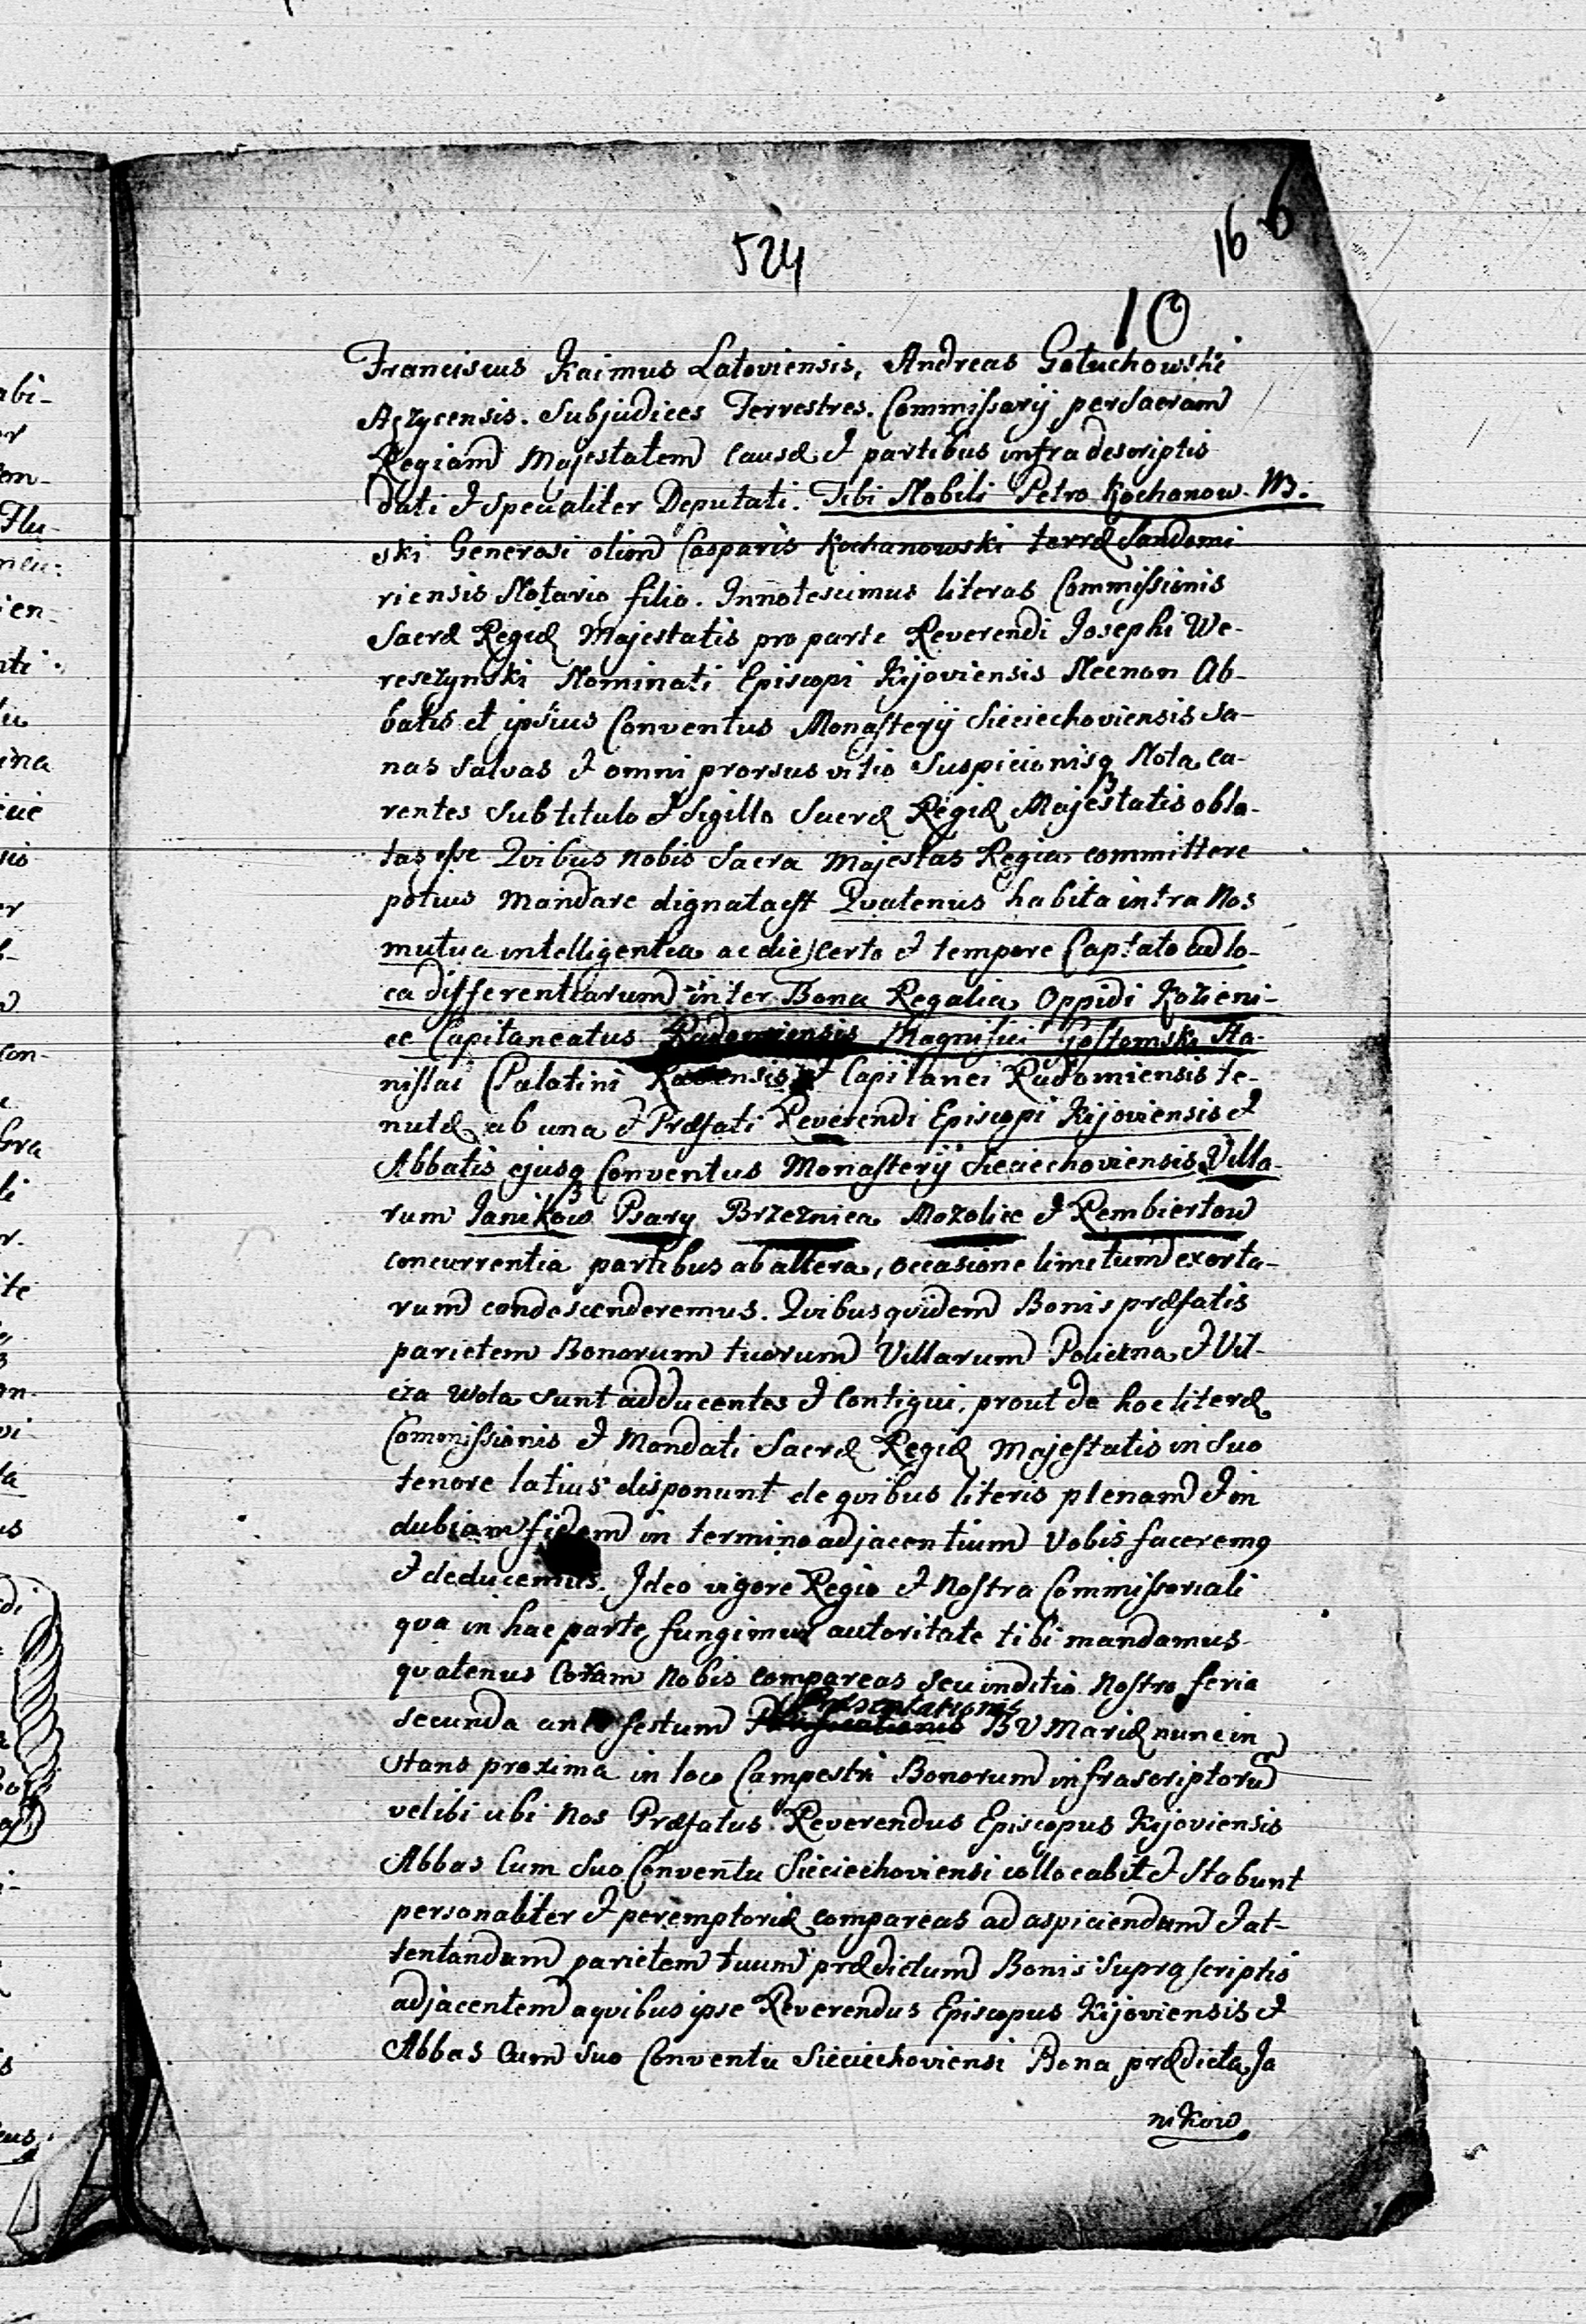 524
166
10
Franciscus Kaimus Latoviensis, Andreas Gołuchowski
Subjudices Terrestres. Commissarij per Sacram
Regiam Majestatem Causæ & partibus infra descriptis
dati & specialiter Deputati. Tibi Nobili Petro Kochanow-
ski Generosi olim Casparis Kochanowski terræ Sandomi
riensis Notario filio. Innotescimus literas Commissionis
Sacræ Regiæ Majestatis pro parte Reverendi Josephi We-
reszynski Nominati Episcopi Kijoviensis Necnon Ab-
batis et ipsius Conventus Monasterij Sieciechoviensis Sa-
nas Salvas & omni prorsus vitio Suspicionisq Nota ca-
rentes Sub titulo & Sigillo Sacræ Regiæ Majestatis obla-
tas esse Qvibus nobis Sacra Majestas Regia committere
potius Mandare dignata est Qvatenus habita intra Nos
mutua intelligentia ac die certo & tempore Captato ad lo-
ca differentiarum inter Bona Regalia Oppidi Kozieni-
ec Capitaneatus Radomiensis Magnifici Gostomski Sta-
nislai Palatini Ravensis & Capitanei Radomiensis te-
nutæ ab una & Præfati Reverendi Episcopi Kijoviensis &
Abbatis ejusq Conventus Monasterij Sieciechoviensis Villa-
rum Janikow Psary Brzeznica Mozolice & Rembiertow
concurrentia partibus ab altera, occasione limitum exorta-
rum condescenderemus. Qvibus qvidem Bonis præfatis
parietem Bonorum tuorum Villarum Policzna & Vil-
cza Wola sunt adducentes & Contigui, prout de hoc literæ
Commissionis & Mandati Sacræ Regiæ Majestatis in Suo
tenore latius disponunt de qvibus literis plenam & in
dubiam fidem in termino adjacentium Vobis faceremq
& deducemus. Ideo vigore Regio & Nostra Commissoriali
qva in hac parte fungimur autoritate tibi mandamus
qvatenus Coram Nobis compareas seu inditio Nostro feria
Præsentationis
secunda ante festum BV Mariæ nunc in
stans proxima in loco Campestri Bonorum infrascriptorum
vel ibi ubi Nos Præfatus Reverendus Episcopus Kijoviensis
Abbas Cum Suo Conventu Sieciechoviensi collocabit & Stabunt
personaliter & peremptoriæ compareas ad aspiciendum & at-
tentandum parietem tuum prædictum Bonis Supra scriptis
adjacentem a qvibus ipse Reverendus Episcopus Kijoviensis &
Abbas Cum Suo Conventu Sieciechoviensi Bona prædicta Ja
nikow